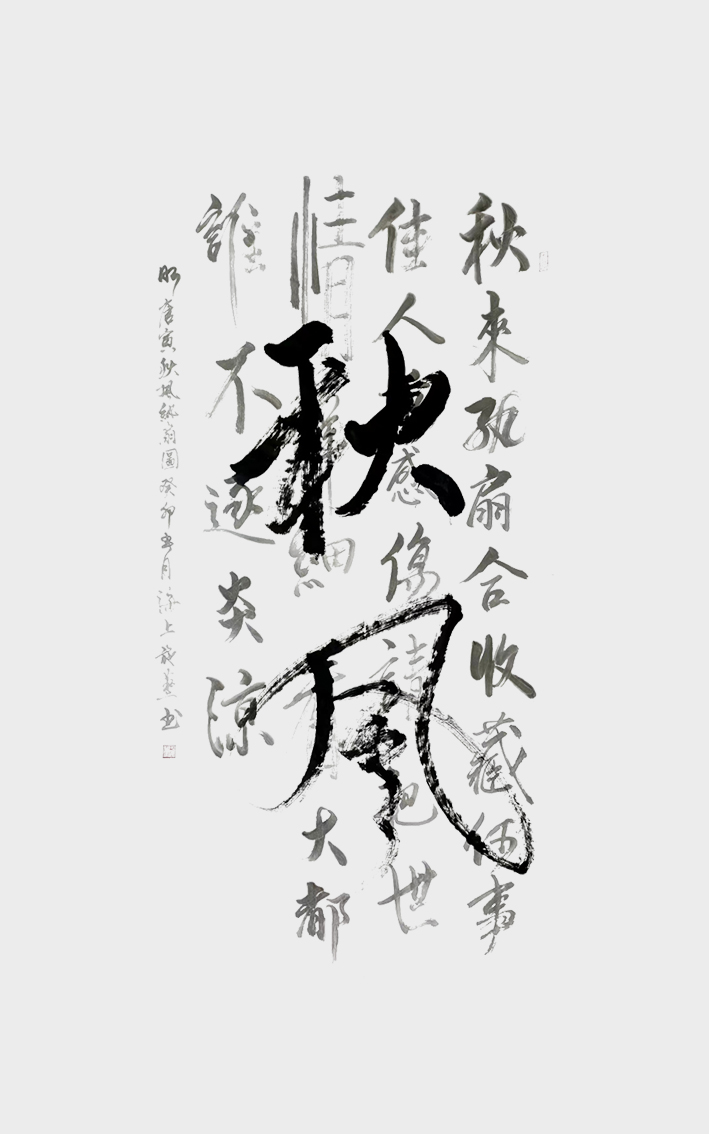 秋風
秋來紈扇合收藏何事
佳人重感傷請把世
情詳細看大都
誰不逐炎涼
明唐寅秋風紈扇圖癸卯 月 上 书